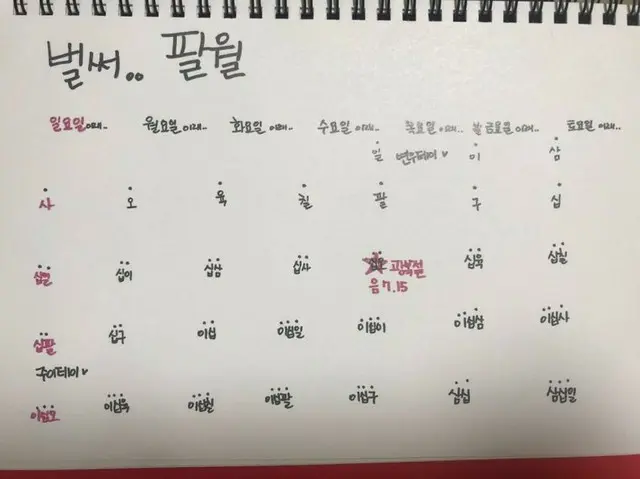 벌써.. 팔월
일요일이래.. 월요일이래.. 화요일이래.. 수요일이래.. 목요일이래.. 금요일이래.. 토요일이래..
일 변우데이♥ 이 삼
사 오 육 칠 팔 구 십
십일 십이 십삼 십사 십오 광복절 십육 십칠
음7.15
십팔 십구 이십 이십일 이십이 이십삼 이십사
주이데이♥
이십오 이십육 이십칠 이십팔 이십구 삼십 삼십일